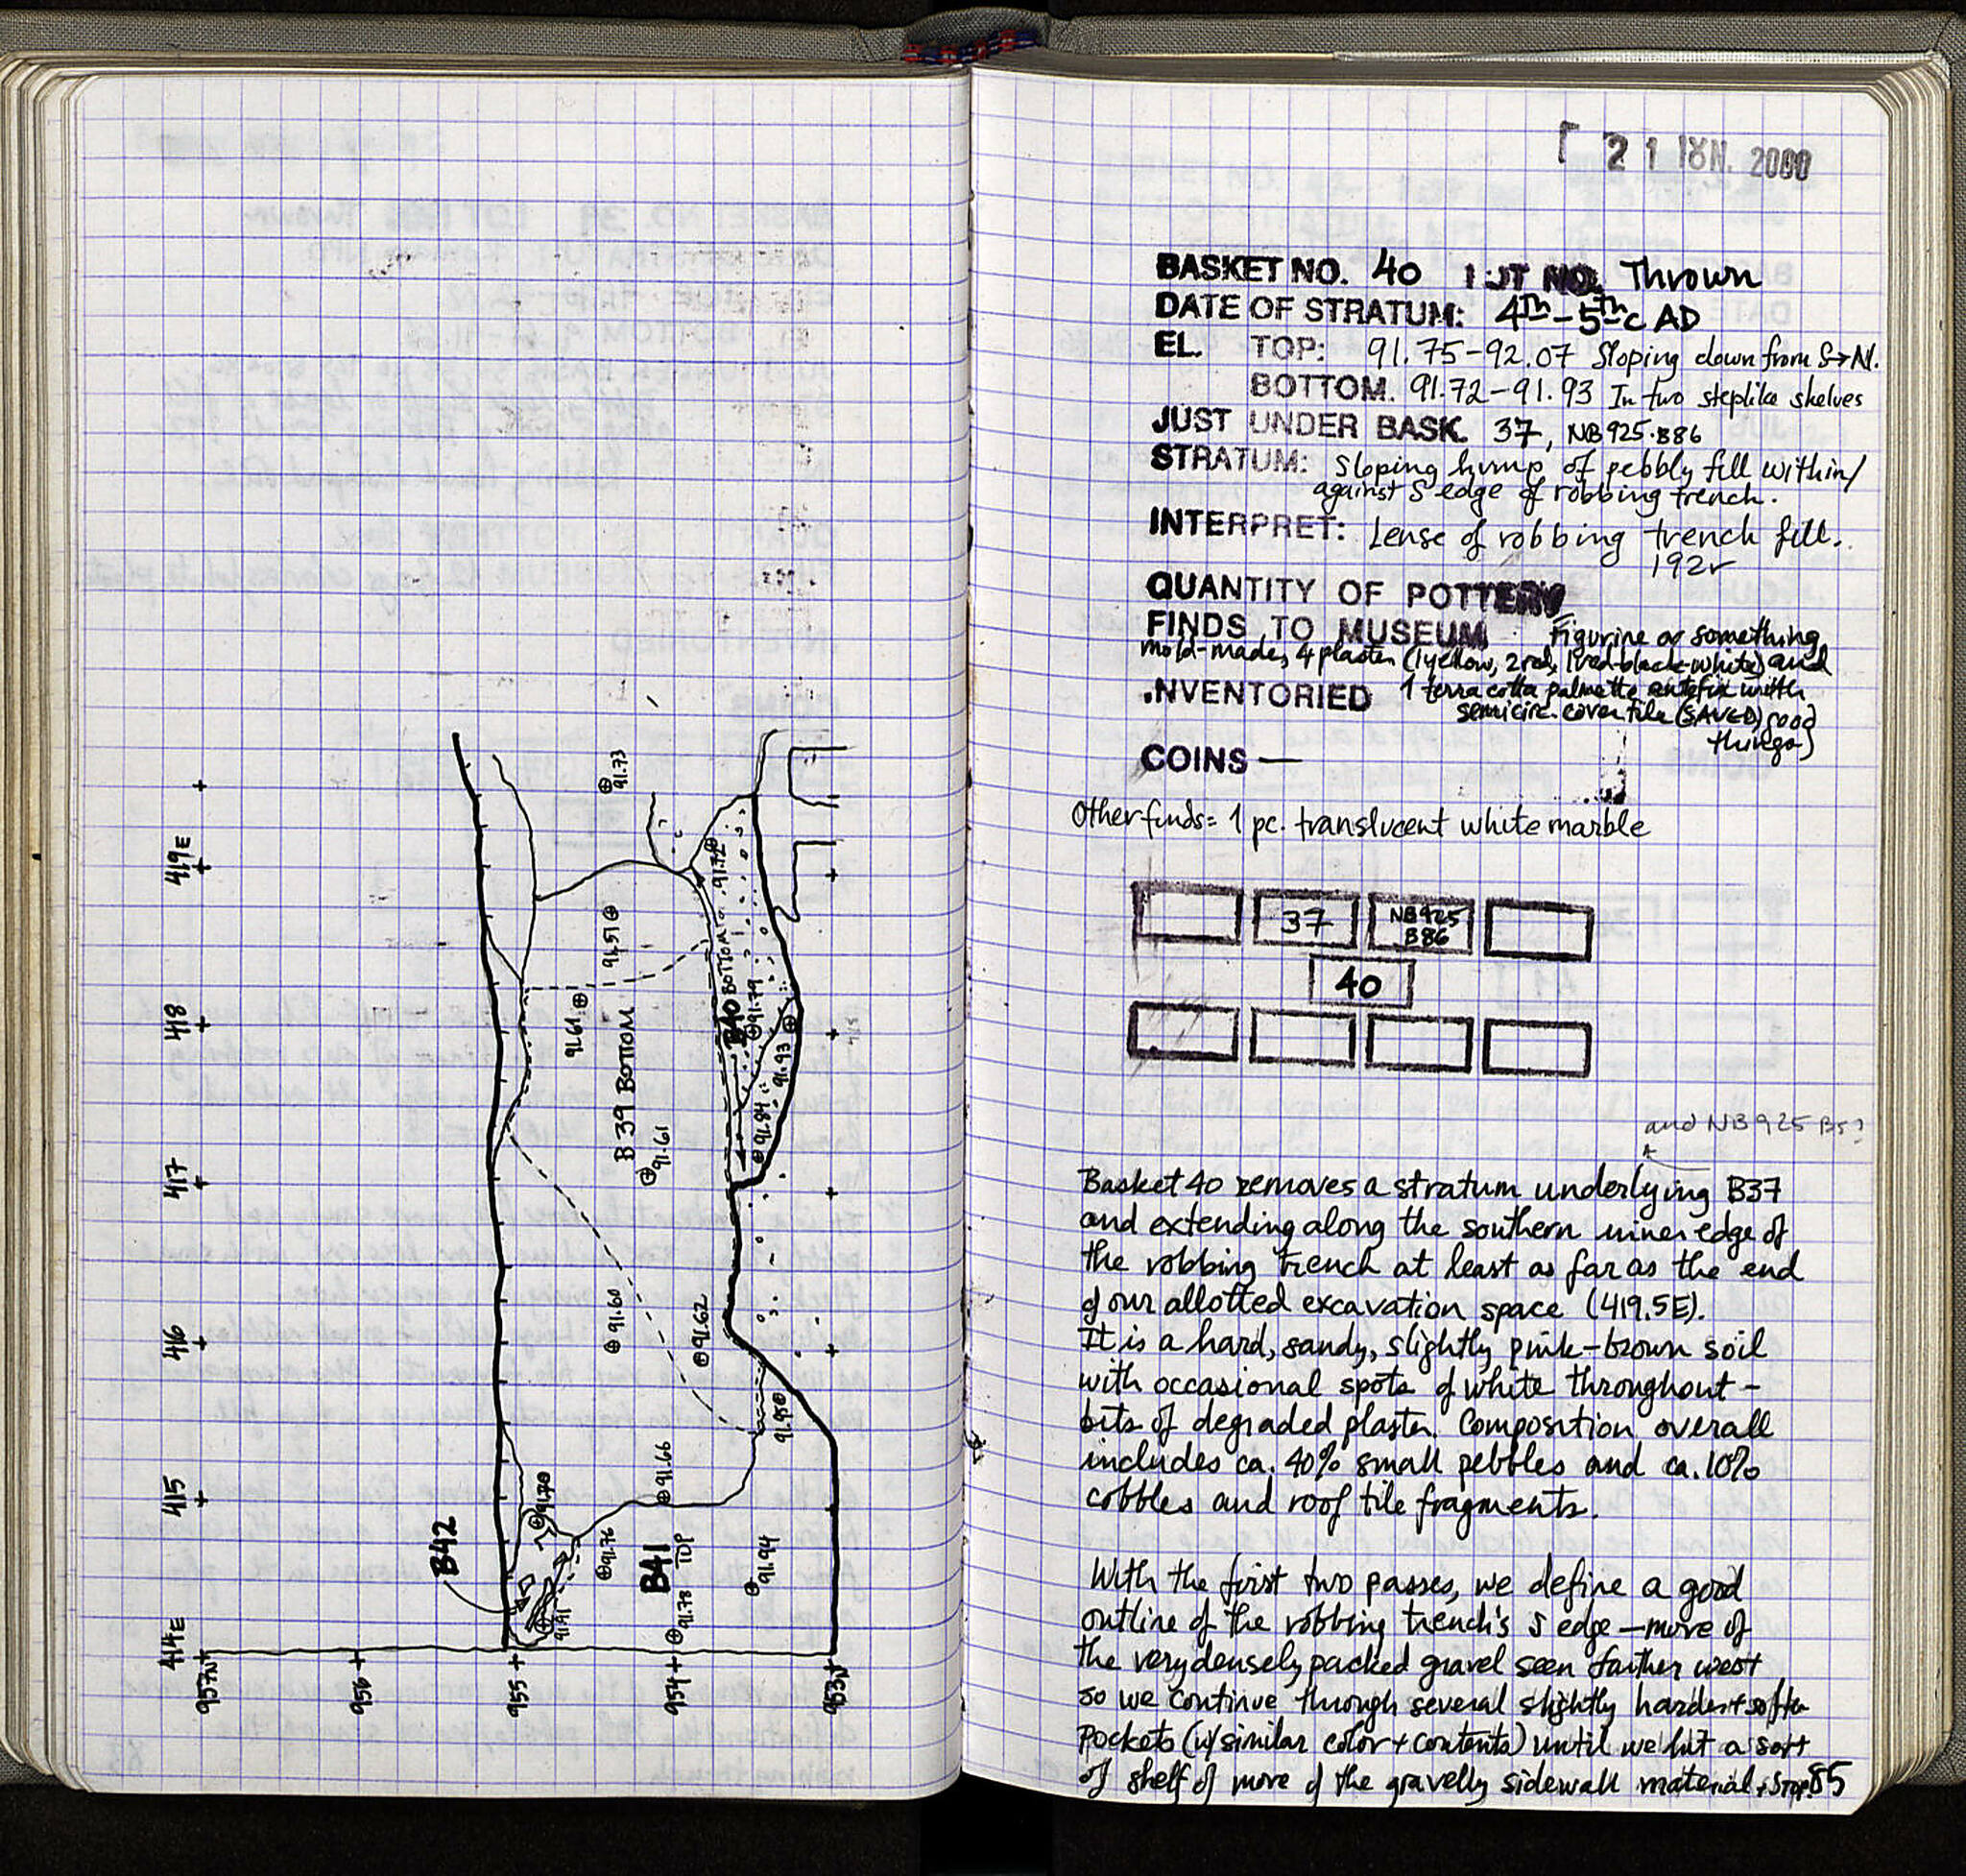 419E
418
417
416
415
414E
957N
956
955
954
953N
91.73
91.72
91.57
91.61
B 39 BOTTOM
91.61
B40 BOTTOM
91.79
91.93
91.84
91.60
91.62
91.95
91.66
91.70
B42
91.76
B41
TOP
91.94
91.78
91.91
21 ΙΟΥΝ. 2000
BASKET NO. 40 LOT NO. Thrown
DATE OF STRATUM: 4th–5th c AD
EL. TOP: 91.75–92.07 Sloping down from S→N.
BOTTOM. 91.72–91.93 In two steplike shelves
JUST UNDER BASK. 37, NB925.B86
STRATUM: Sloping hump of pebbly fill within/
against S edge of robbing trench.
INTERPRET: Lense of robbing trench fill.
192r
QUANTITY OF POTTERY
FINDS TO MUSEUM Figurine or something
mold-made, 4 plaster (1 yellow, 2 red, 1 red-black-white) and
INVENTORIED 1 terra cotta palmette antefix with
semicirc. cover tile (SAVED) good
things)
COINS —
Other finds = 1 pc. translucent white marble
37 NB925
B86
40
and NB925 B5?
Basket 40 removes a stratum underlying B37
and extending along the southern inner edge of
the robbing trench at least as far as the end
of our allotted excavation space (419.5E).
It is a hard, sandy, slightly pink-brown soil
with occasional spots of white throughout –
bits of degraded plaster. Composition overall
includes ca. 40% small pebbles and ca. 10%
cobbles and roof tile fragments.
With the first two passes, we define a good
outline of the robbing trench's S edge – more of
the very densely packed gravel seen farther west
so we continue through several slightly harder + softer
pockets (w/ similar color + contents) until we hit a sort
of shelf of more of the gravelly sidewall material + STOP. 85